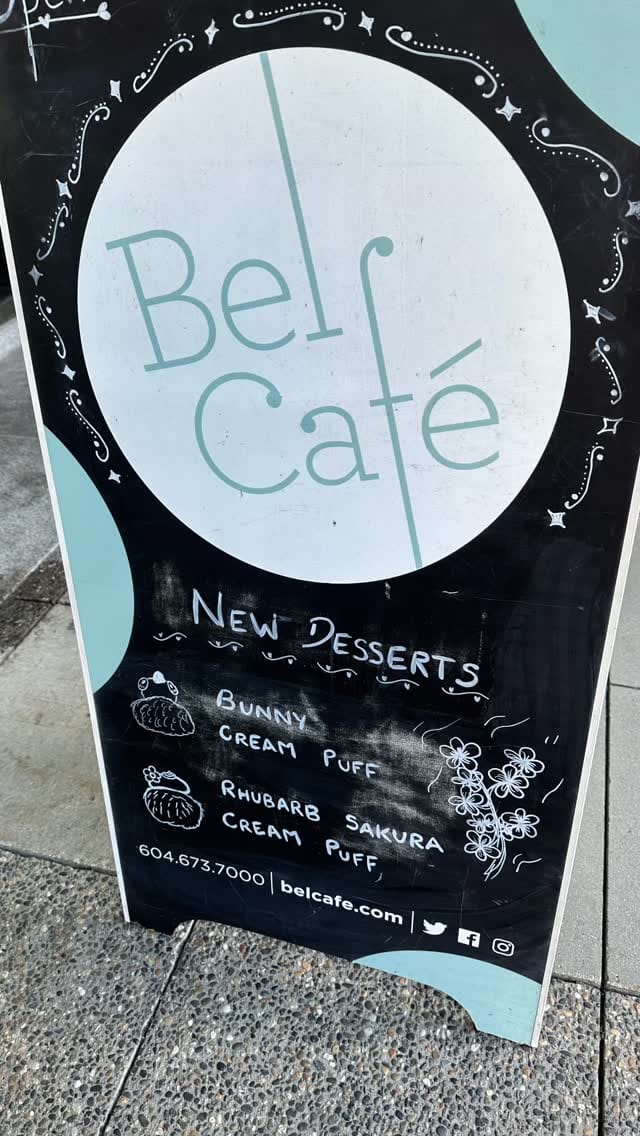 Bel
Café
NEW DESSERTS
BUNNY
CREAM PUFF
RHUBARB SAKURA
CREAM PUFF
604.673.7000 | belcafe.com |